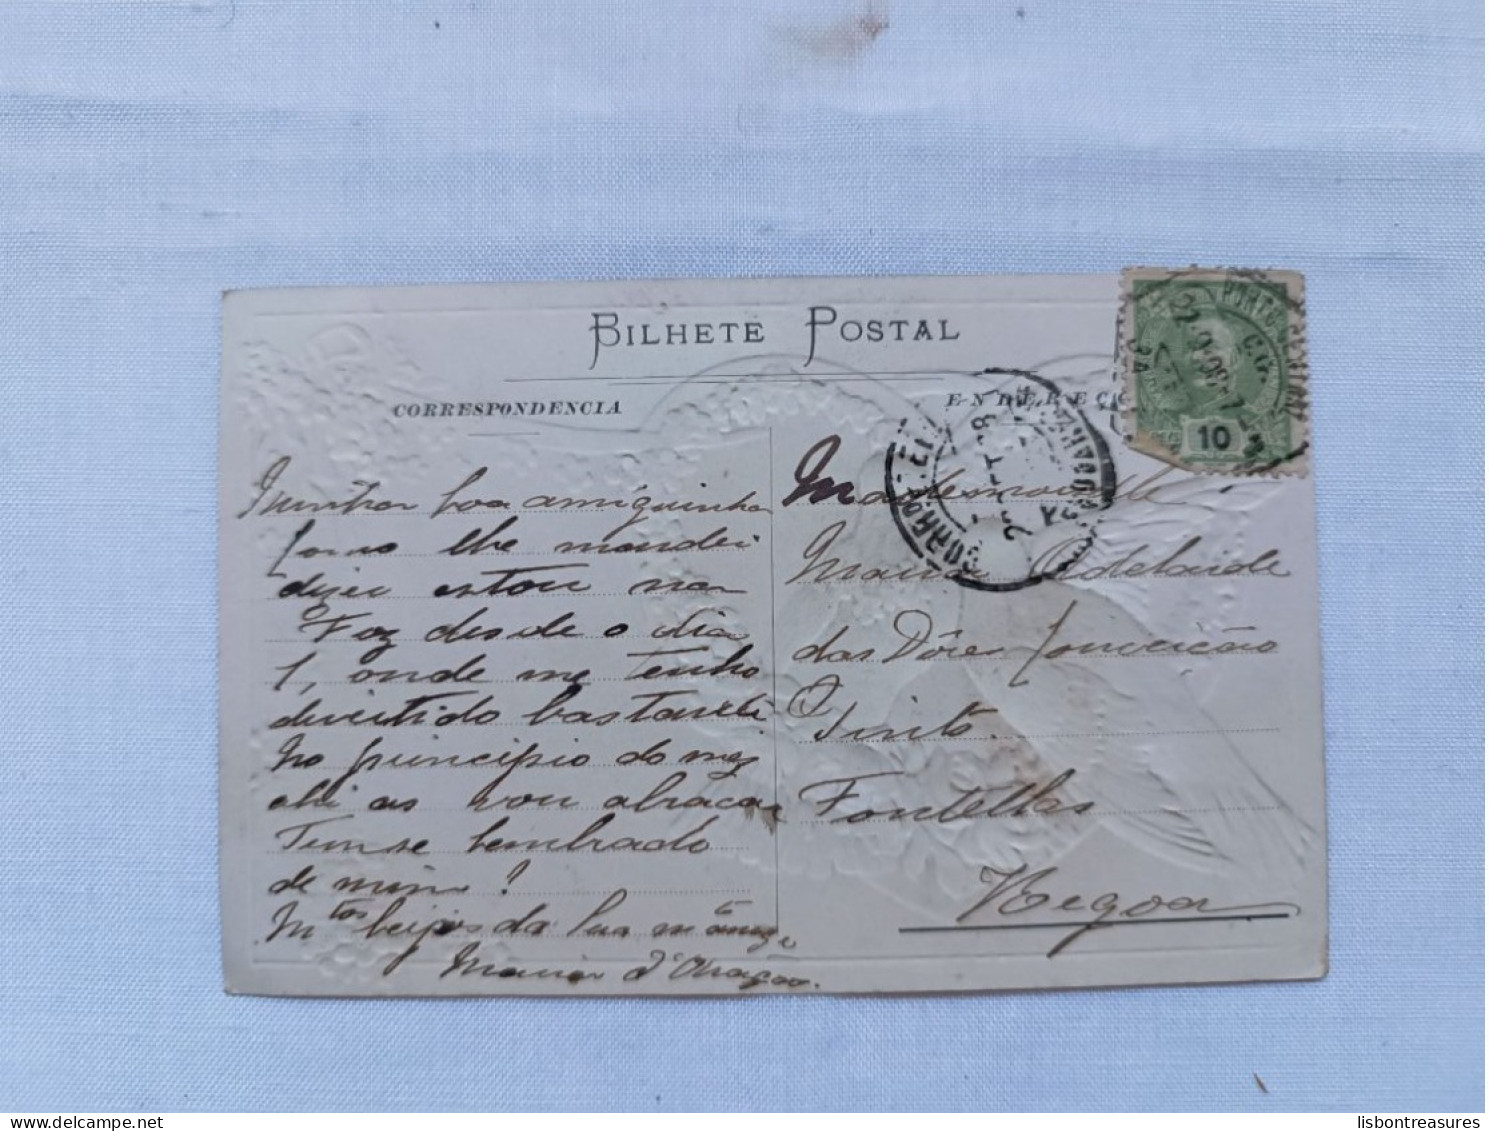 BILHETE POSTAL
CORRESPONDENCIA
Minha boa amiguinha
Como lhe mandei
dizer estou na
Foz desde o dia
1, onde me tenho
divertido bastante
No principio do mez
ahi as vou abraçar
Tem-se lembrado
de mim?
Mtos beijos da sua mto amiga
Maria d'Aragão.
ENDEREÇO
Mademoiselle
Maria Adelaide
das Dôres Conceição
Pinto.
Fontellas
Regoa
10
PORTO CENTRAL
lisbontreasures